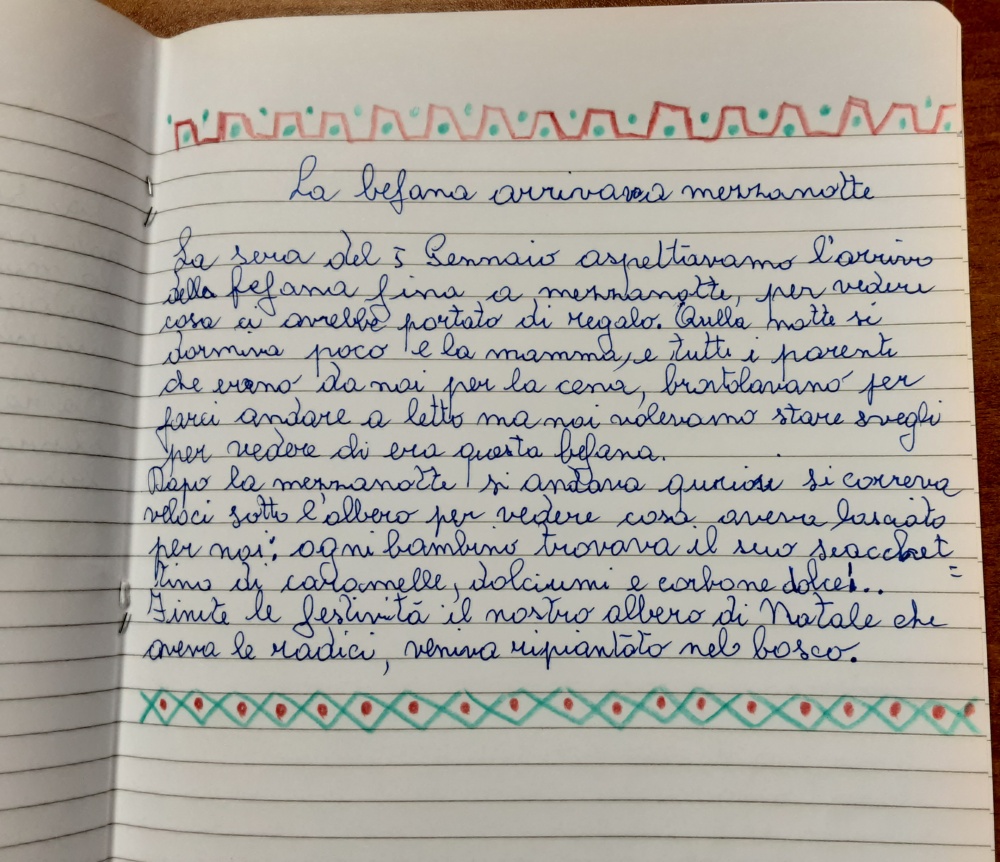 La befana arrivava a mezzanotte
La sera del 5 Gennaio aspettavamo l'arrivo
della befana fino a mezzanotte, per vedere
cosa ci avrebbe portato di regalo. Quella notte si
dormiva poco e la mamma, e tutti i parenti
che erano da noi per la cena, brontolavano per
farci andare a letto ma noi volevamo stare svegli
per vedere di era questa befana.
Dopo la mezzanotte si andava curiosi si correva
veloci sotto l'albero per vedere cosa aveva lasciato
per noi: ogni bambino trovava il suo
tino di caramelle, dolciumi e carbone dolce!..
Finite le festività il nostro albero di Natale che
aveva le radici, veniva ripiantato nel bosco.